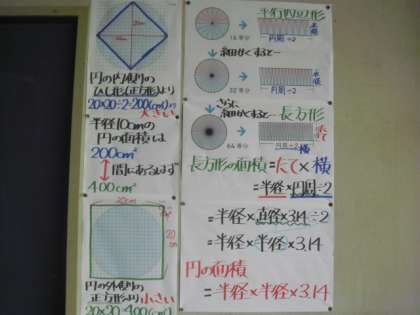 円の内側の
ひし形(正方形)より
20×20÷2=200(cm²)
大きい
半径10cmの
円の面積は
200cm²
間にあるはず
400cm²
20cm
20
cm
円の外側の
正方形より小さい
20×20=400(cm²)
平行四辺形
16等分
円周÷2
細かくすると…
32等分
円周÷2
さらに
細かくすると…
長方形
64等分
円周÷2
たて
横
長方形の面積=たて×横
=半径×円周÷2
=半径×直径×3.14÷2
=半径×半径×3.14
円の面積
=半径×半径×3.14